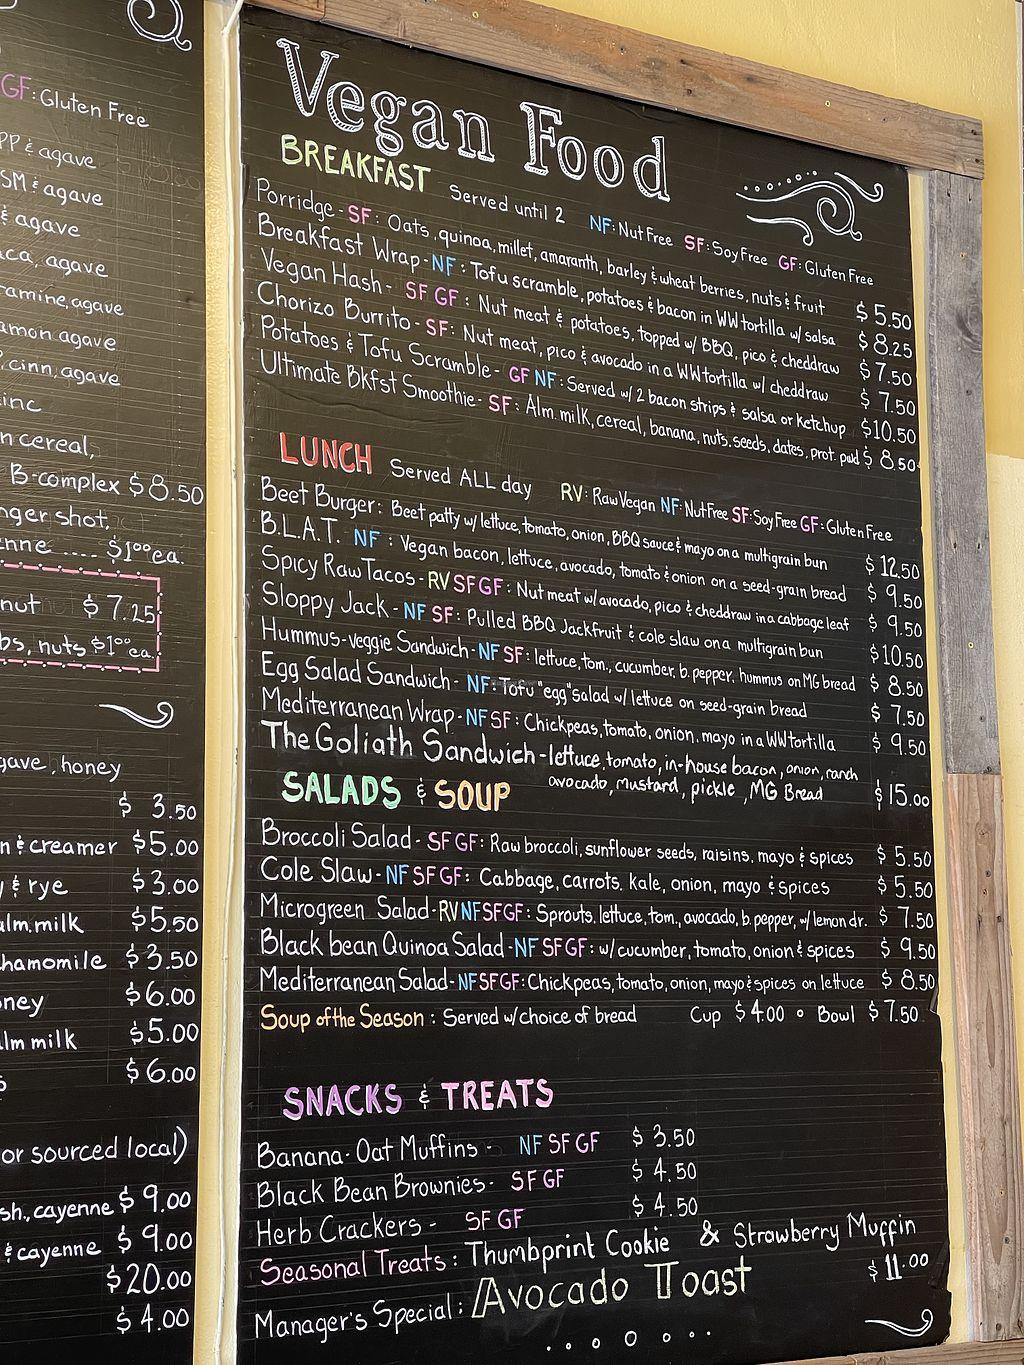 GF: Gluten Free
PP & agave
SM & agave
& agave
aca, agave
tamine, agave
amon agave
, cinn, agave
inc
n cereal,
B-complex $8.50
nger shot,
enne .... $1⁰⁰ea.
nut $7.25
bs, nuts $1⁰⁰ea.
gave, honey
$ 3.50
n & creamer $5.00
y & rye $3.00
alm.milk $5.50
hamomile $3.50
oney $6.00
alm milk $5.00
$6.00
or sourced local)
sh., cayenne $9.00
& cayenne $9.00
$20.00
$4.00
Vegan Food
BREAKFAST Served until 2 NF: Nut Free SF: Soy Free GF: Gluten Free
Porridge - SF: Oats, quinoa, millet, amaranth, barley & wheat berries, nuts & fruit $5.50
Breakfast Wrap - NF: Tofu scramble, potatoes & bacon in WW tortilla w/ salsa $8.25
Vegan Hash - SF GF: Nut meat & potatoes, topped w/ BBQ, pico & cheddraw $7.50
Chorizo Burrito - SF: Nut meat, pico & avocado in a WW tortilla w/ cheddraw $7.50
Potatoes & Tofu Scramble - GF NF: Served w/ 2 bacon strips & salsa or ketchup $10.50
Ultimate Bkfst Smoothie - SF: Alm. milk, cereal, banana, nuts, seeds, dates, prot. pwd $8.50
LUNCH Served ALL day RV: Raw Vegan NF: Nut Free SF: Soy Free GF: Gluten Free
Beet Burger: Beet patty w/ lettuce, tomato, onion, BBQ sauce & mayo on a multigrain bun $12.50
B.L.A.T. NF: Vegan bacon, lettuce, avocado, tomato & onion on a seed-grain bread $9.50
Spicy Raw Tacos - RV SF GF: Nut meat w/ avocado, pico & cheddraw in a cabbage leaf $9.50
Sloppy Jack - NF SF: Pulled BBQ Jackfruit & cole slaw on a multigrain bun $10.50
Hummus-veggie Sandwich - NF SF: lettuce, tom., cucumber, b. pepper, hummus on MG bread $8.50
Egg Salad Sandwich - NF: Tofu "egg" salad w/ lettuce on seed-grain bread $7.50
Mediterranean Wrap - NF SF: Chickpeas, tomato, onion, mayo in a WW tortilla $9.50
The Goliath Sandwich - lettuce, tomato, in-house bacon, onion, ranch
avocado, mustard, pickle, MG Bread $15.00
SALADS & SOUP
Broccoli Salad - SF GF: Raw broccoli, sunflower seeds, raisins, mayo & spices $5.50
Cole Slaw - NF SF GF: Cabbage, carrots, kale, onion, mayo & spices $5.50
Microgreen Salad - RV NF SF GF: Sprouts, lettuce, tom., avocado, b. pepper, w/ lemon dr. $7.50
Black bean Quinoa Salad - NF SF GF: w/ cucumber, tomato, onion & spices $9.50
Mediterranean Salad - NF SF GF: Chickpeas, tomato, onion, mayo & spices on lettuce $8.50
Soup of the Season: Served w/ choice of bread Cup $4.00 ° Bowl $7.50
SNACKS & TREATS
Banana-Oat Muffins - NF SF GF $3.50
Black Bean Brownies - SF GF $4.50
Herb Crackers - SF GF $4.50
Seasonal Treats: Thumbprint Cookie & Strawberry Muffin
Manager's Special: Avocado Toast $11.00